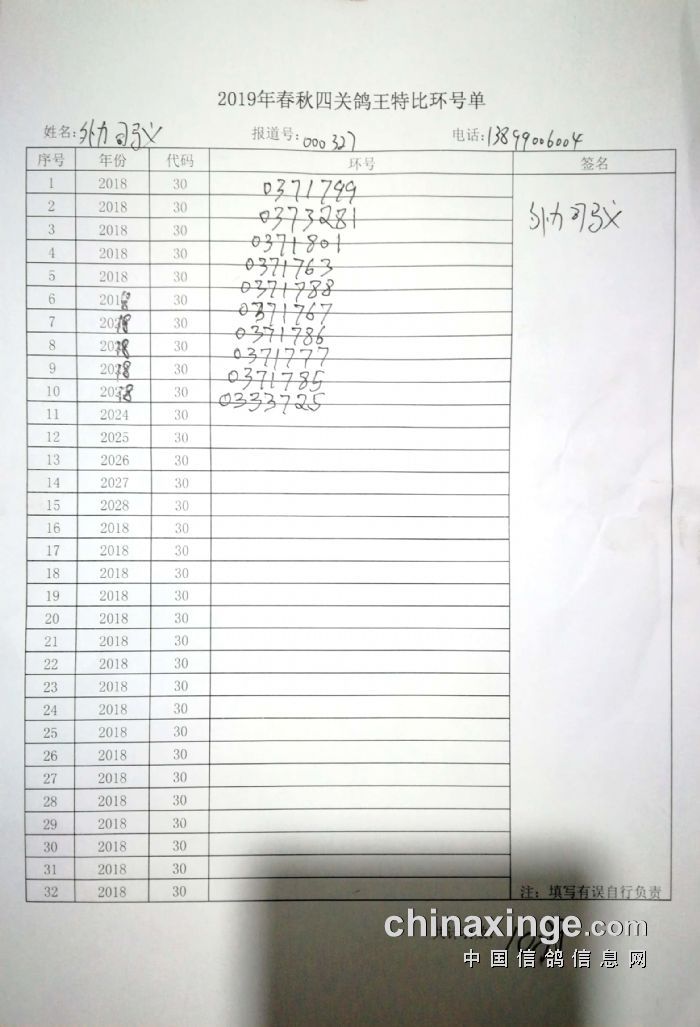 2019年春秋四关鸽王特比环号单
姓名: 外力司义 报道号: 000327 电话: 13899006004
序号 年份 代码 环号 签名
1 2018 30 0371799
2 2018 30 0373281
外力司义
3 2018 30 0371801
4 2018 30 0371763
5 2018 30 0371788
6 2018 30 0371767
7 2018 30 0371786
8 2018 30 0371777
9 2018 30 0371785
10 2018 30 0333725
11 2024 30
12 2025 30
13 2026 30
14 2027 30
15 2028 30
16 2018 30
17 2018 30
18 2018 30
19 2018 30
20 2018 30
21 2018 30
22 2018 30
23 2018 30
24 2018 30
25 2018 30
26 2018 30
27 2018 30
28 2018 30
29 2018 30
30 2018 30
31 2018 30
32 2018 30 注: 填写有误自行负责
chinaxinge.com
中国信鸽信息网